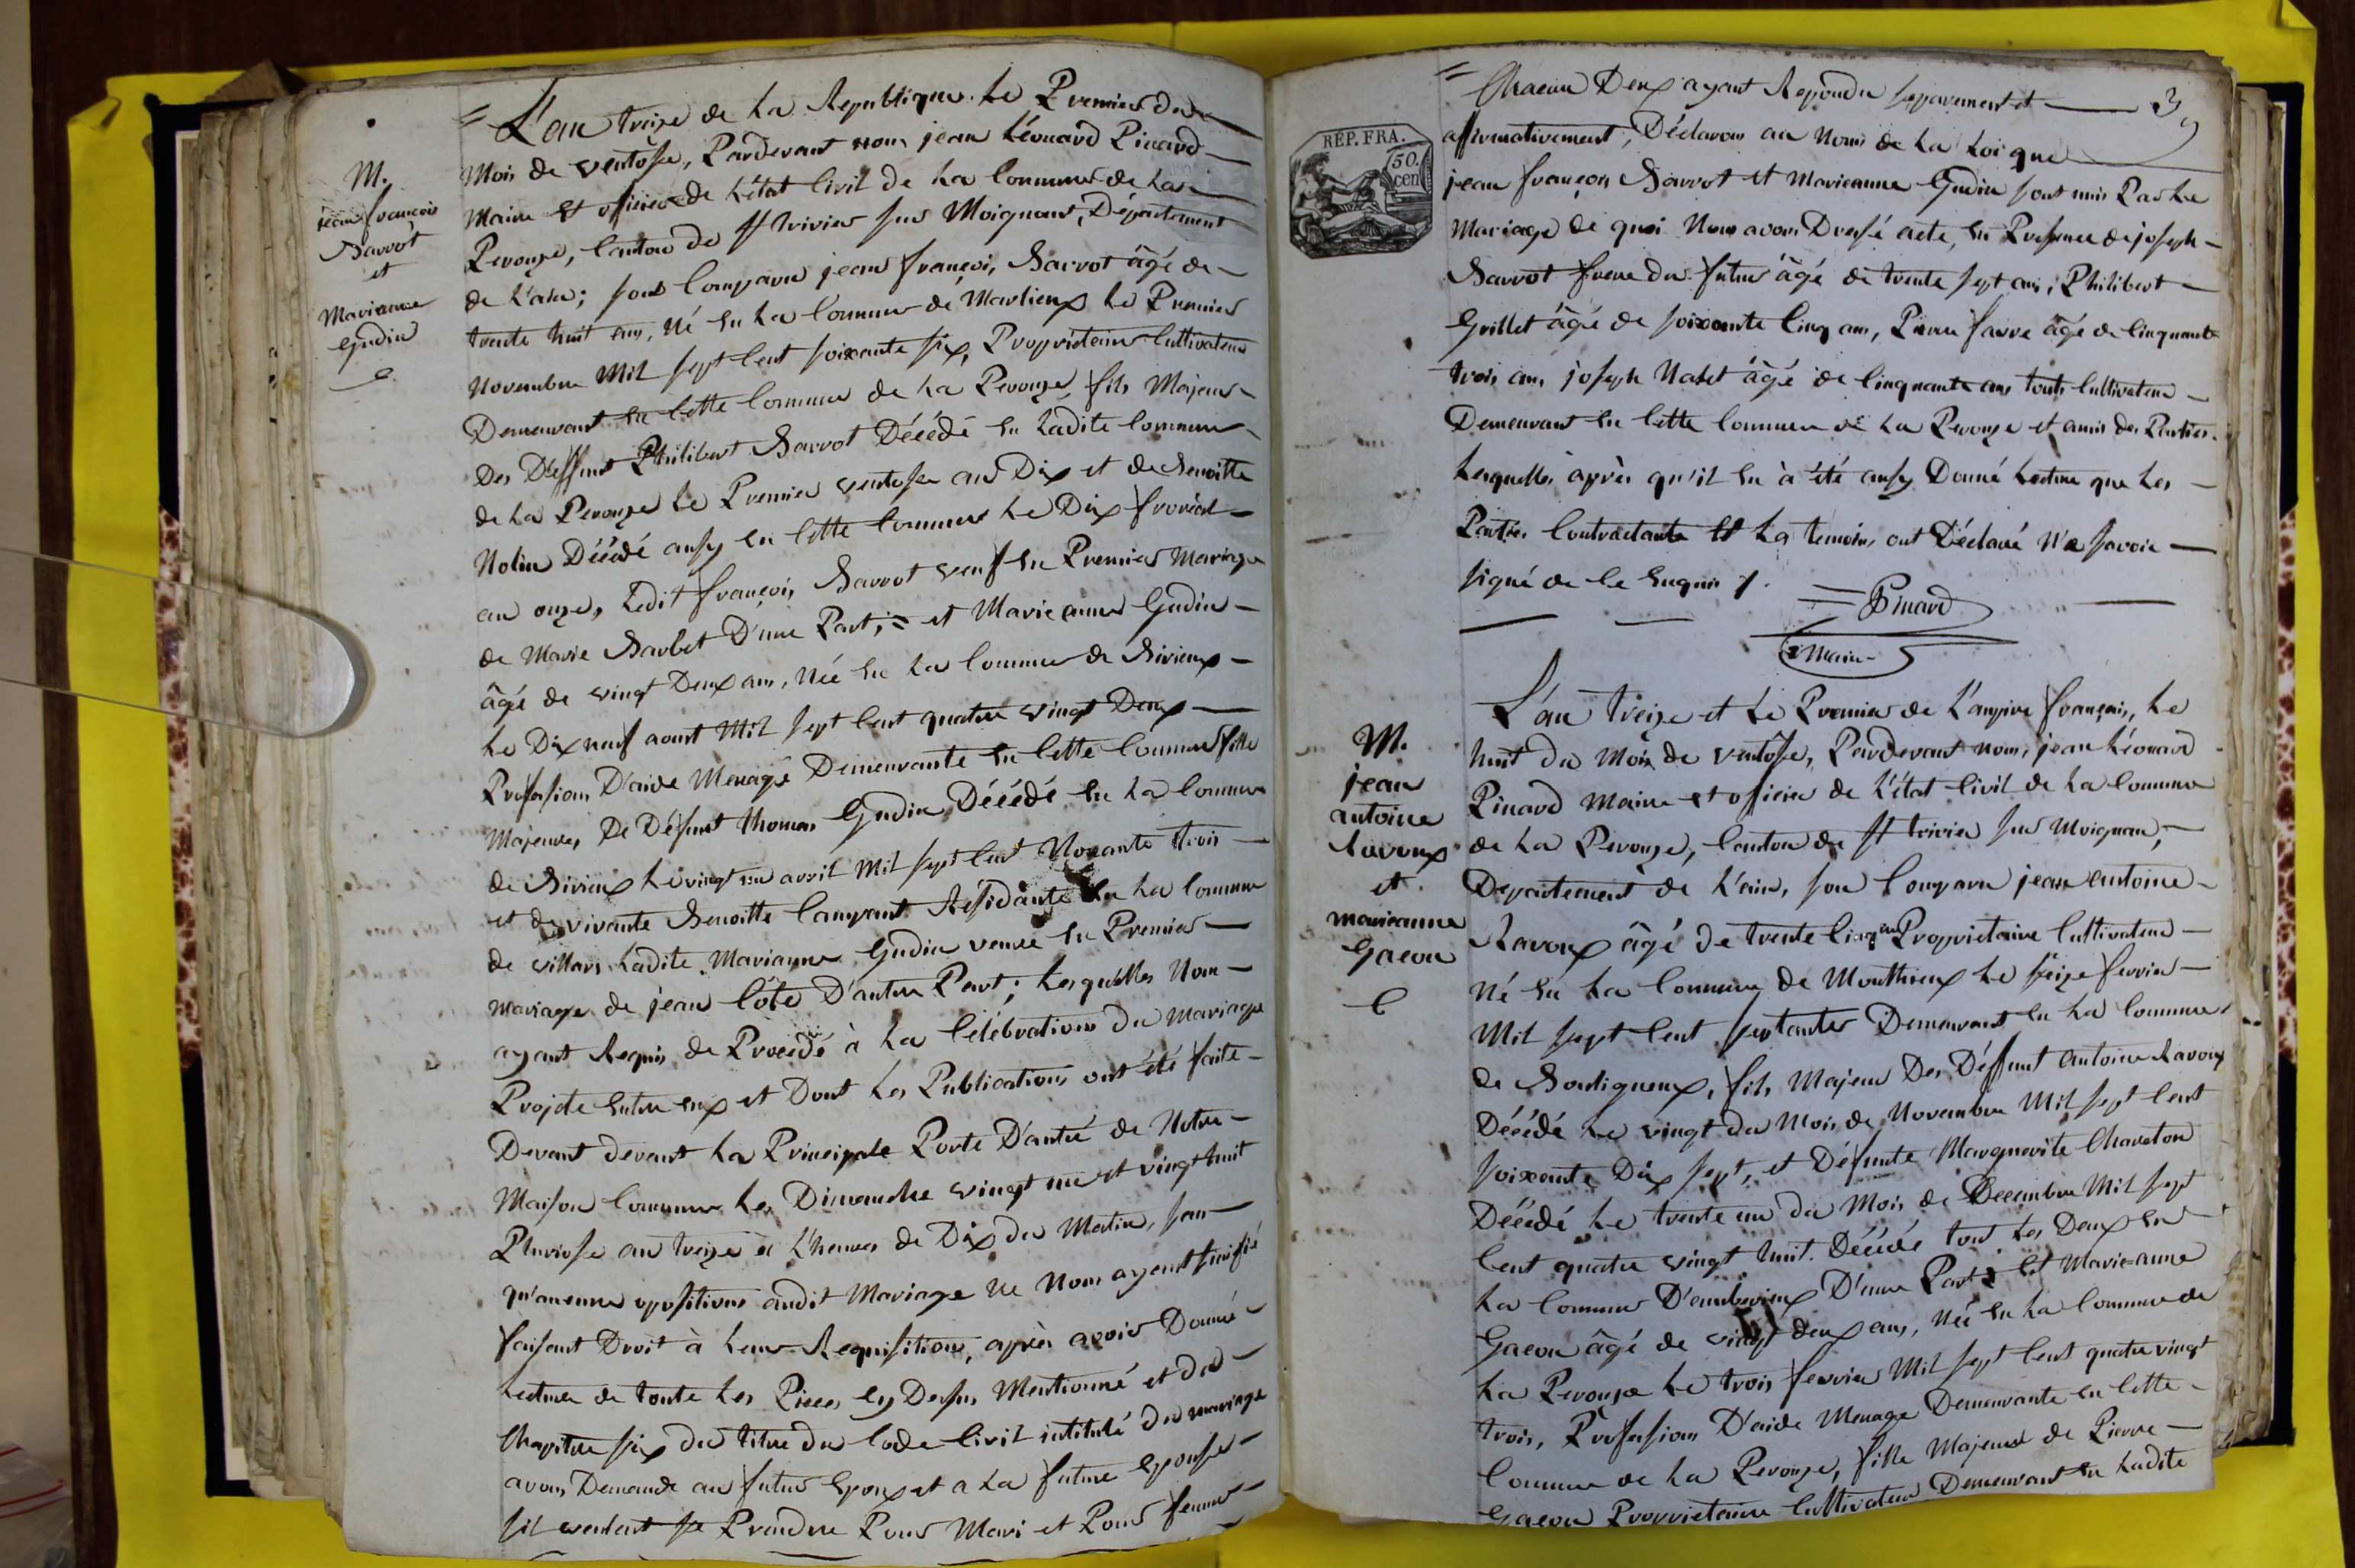 M.
jean françois
Barrot
et
Marieanne
Gudin
L'an treize de La Republique. Le Premier du
Mois de ventose, Pardevant nous jean Léonard Pinard
Maire et officier de L'état Civil de La Commune de La
Perouze, Canton de St trivier sur Moignant, Département
de L'ain; sont Comparu jean françois Barrot âgé de
trente huit ans, Né en La Commune de Marlieux Le Premier
Novembre Mil sept Cent soixante six, Proprietaire Cultivateur
Demeurant en Cette Commune de La Perouze, fils Majeur
Des Deffunt Philibert Barrot Décédé en Ladite Commune
de La Perouze Le Premier ventose an Dix et de Benoitte
Nolin Décédé ausy en Cette Commune Le Dix froréal
an onze, Ledit françois Barrot veuf en Premier Mariage
de Marie Barbet D'une Part; = et Marieanne Gudin
âgé de vingt Deux ans, Née en La Commune de Birieux
Le Dix neuf aoust Mil sept Cent quatre vingt Deux
Profession D'aide Menagé Demeurante en Cette Commune fille
Majeure, De Défunt thomas Gudin Décédé en La Commune
de Birieux Le vingt un avril Mil sept Cent Nonante trois
et de vivante Benoitte Résidante en La Commune
de villars Ladite Marianne Gudin veuve en Premier
mariage de jean Côte D'autre Part; Lesquelles Nous
ayant Requis de Procédé à La Célébration du Mariage
Projeté entre eux et Dont Les Publications ont été faite
Devant devant La Principale Porte D'antré de Notre
Maison Commune Les Dimanche vingt un et vingt huit
Pluviose an treize à L'heure de Dix du Matin, sans
qu'aucune opositions audit Mariage Ne Nous ayent sinifié
faisant Droit à Leur Requisition, après avoir Donné
Lecture de toute Les Pieces Cy Desus Mentionné et du
Chapitre six du titre du Code Civil intitulé du mariage
avons Demandé au futur Epoux et a La future Epouse
s'il veulent se Prendre Pour Mari et Pour femme
3
RÉP. FRA.
50.
cen
Chacun Deux ayant Repondu séparement et
affirmativement, Déclarons au Nom de La Loi que
jean françois Barrot et Marieanne Gudin sont unis Par Le
Mariage de quoi Nous avons Dresé acte, en Presence de joseph
Barrot frere du futur âgé de trente sept ans, Philibert
Grillet âgé de soixante Cinq ans, Pierre favre âgé de Cinquante
trois ans, joseph Nallet âgé de Cinquante ans touts Cultivateur
Demeurant en Cette Commune de La Perouze et amis des Parties.
Lesquelles après qu'il en à été ausy Donné Lecture que Les
Parties Contractante Et La temoins ont Déclaré N'a savoir
signé de Ce Enquis /.
Pinard
Maire
M.
jean
antoine
Ravoux
et
marieanne
Gacon
L'an treize et Le Premier de L'anpire français, Le
huit du Mois de ventose, Pardevant nous, jean Léonard
Pinard Maire et officier de L'état Civil de La Commune
de La Perouze, Canton de St trivier sur Moignan,
Departement de L'ain, son Comparu jean antoine
Ravoux âgé de trente Cinq ans Proprietaire Cultivateur
Né en La Commune de Monthieux Le seize fevrier
Mil sept Cent septante Demeurant en La Commune
de Bouligneux, fils Majeur Des Déffunt antoine Ravoux
Décédé Le vingt du Mois de Novembre Mil sept Cent
soixante Dix sept, et Défunte Marguerite Chaneton
Décédé Le trente un du Mois de Decembre Mil sept
Cent quatre vingt huit. Décédé tout Les Deux en
La Commune D'anberieux D'une Part Et Marie-anne
Gacon âgé de vingt deux ans, Née en La Commune de
La Perouze Le trois fevrier Mil sept Cent quatre vingt
trois, Profession D'aide Menage Demeurante en Cette
Commune de La Perouze, fille Majeure de Pierre
Gacon Proprietaire Cultivateur Demeurant en Ladite